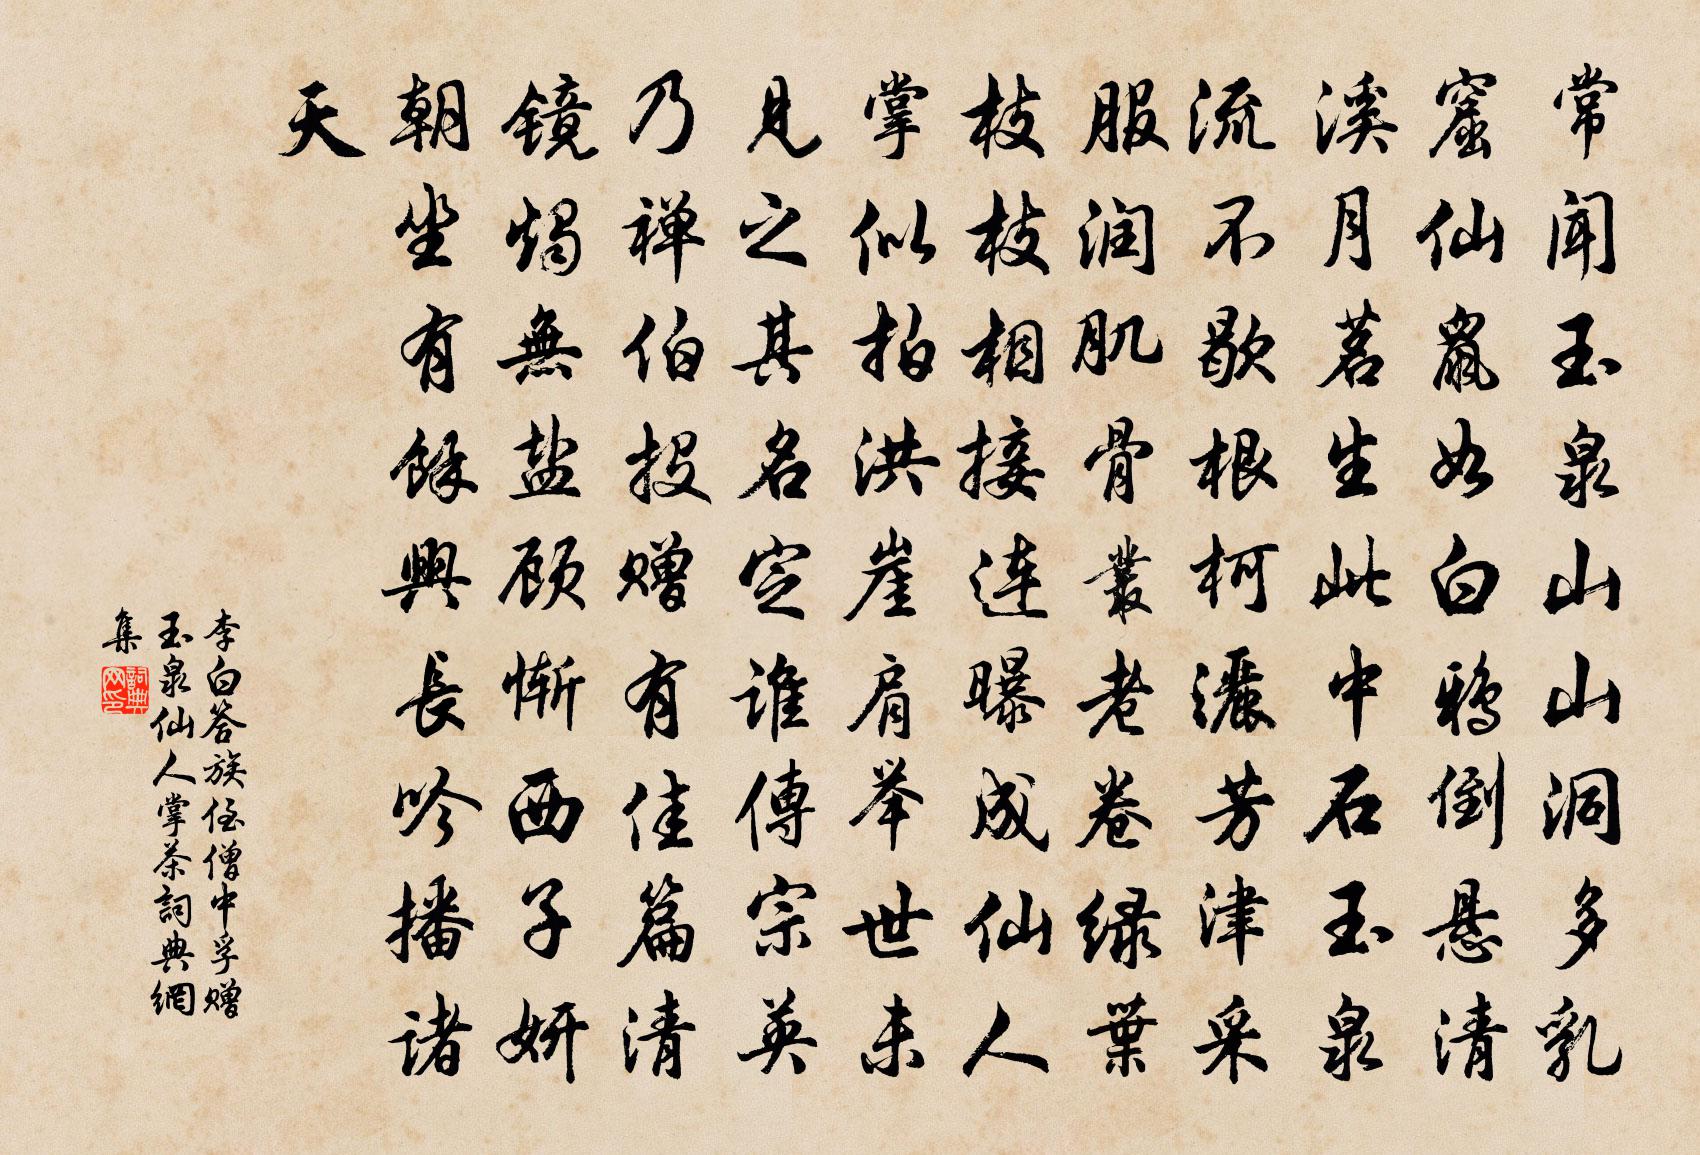 常闻玉泉山山洞多乳
窟仙鼠如白鸦倒悬清
溪月茗生此中石玉泉
流不歇根柯洒芳津采
服润肌骨叢老卷绿葉
枝枝相接连曝成仙人
掌似拍洪崖肩举世未
见之其名定谁傳宗英
乃禅伯投赠有佳篇清
镜燭無盐顾惭西子妍
朝坐有餘興長吟播诸
天
李白答族侄僧中孚赠
玉泉仙人掌茶詞典網
集
詞典
网印